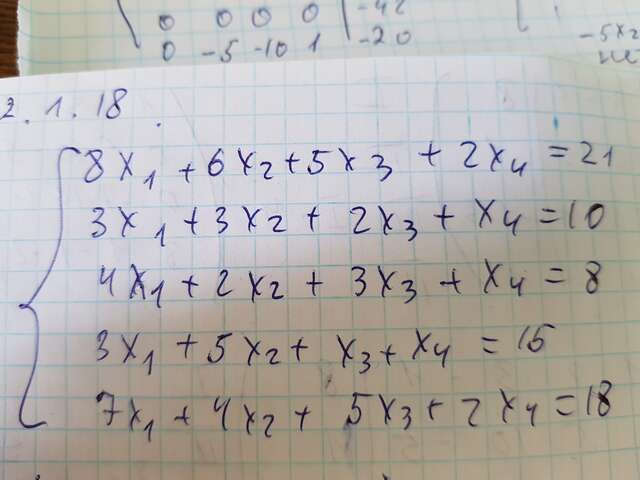 0 0 0 0 | -42
0 -5 -10 1 | -20
-5x2
2.1.18.
8x1 + 6x2 + 5x3 + 2x4 = 21
3x1 + 3x2 + 2x3 + x4 = 10
4x1 + 2x2 + 3x3 + x4 = 8
3x1 + 5x2 + x3 + x4 = 15
7x1 + 4x2 + 5x3 + 2x4 = 18